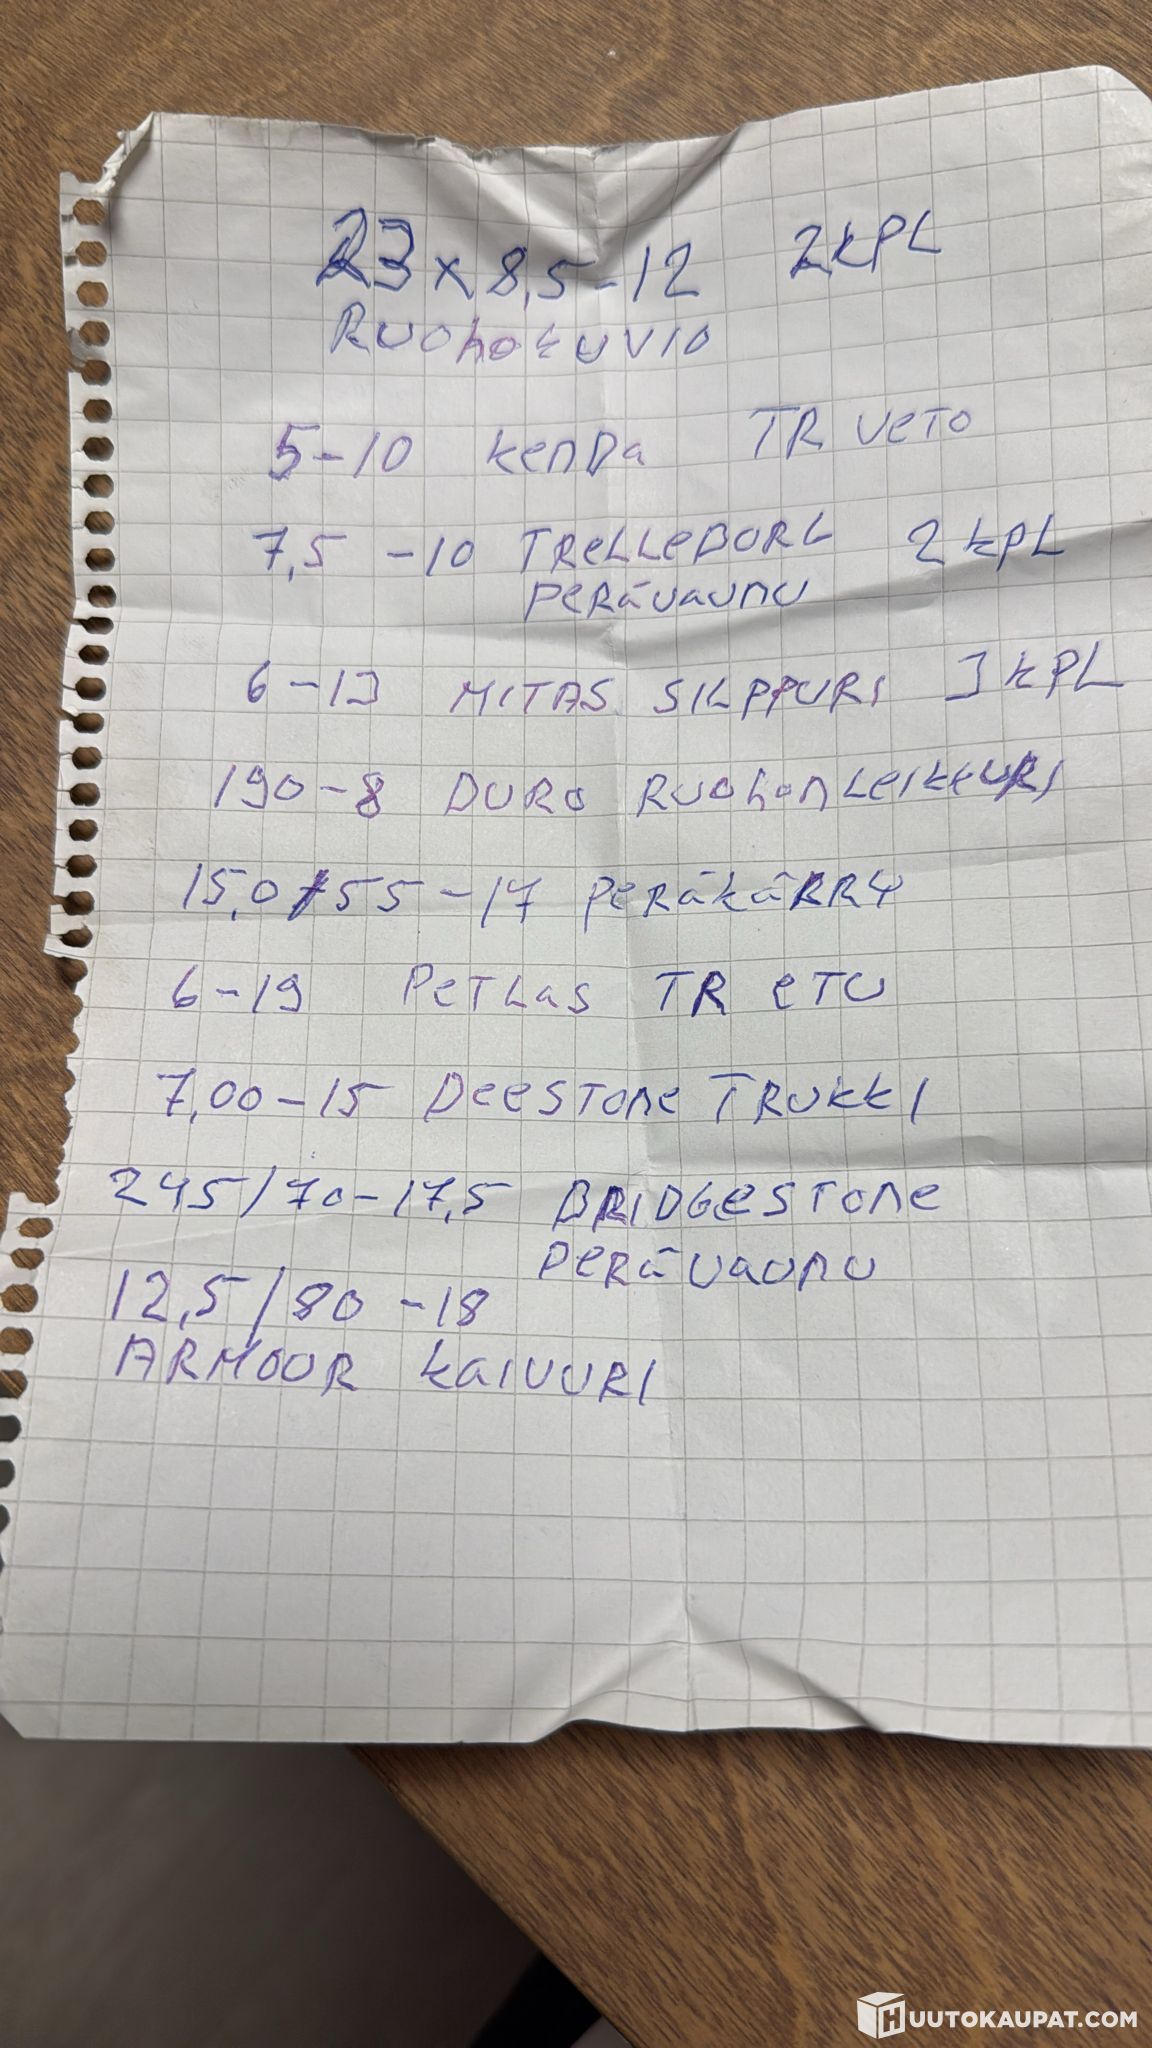 23 x 8,5-12 2 KPL
RUOHOKUVIO
5-10 KENDA TR VETO
7,5 -10 TRELLEBORG 2 KPL
PERÄVAUNU
6-13 MITAS SILPPURI 3 KPL
190-8 DURO RUOHONLEIKKURI
15,0/55-17 PERÄKÄRRY
6-19 PETLAS TR ETU
7,00-15 DEESTONE TRUKKI
245/70-17,5 BRIDGESTONE
PERÄVAUNU
12,5/80 -18
ARMOUR KAIVURI
HUUTOKAUPAT.COM